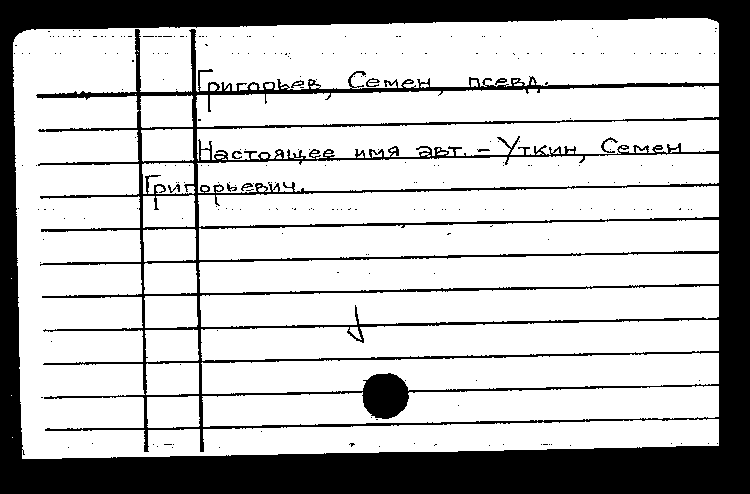 Григорьев, Семен, псевд.
Настоящее имя авт. – Уткин, Семен
Григорьевич.